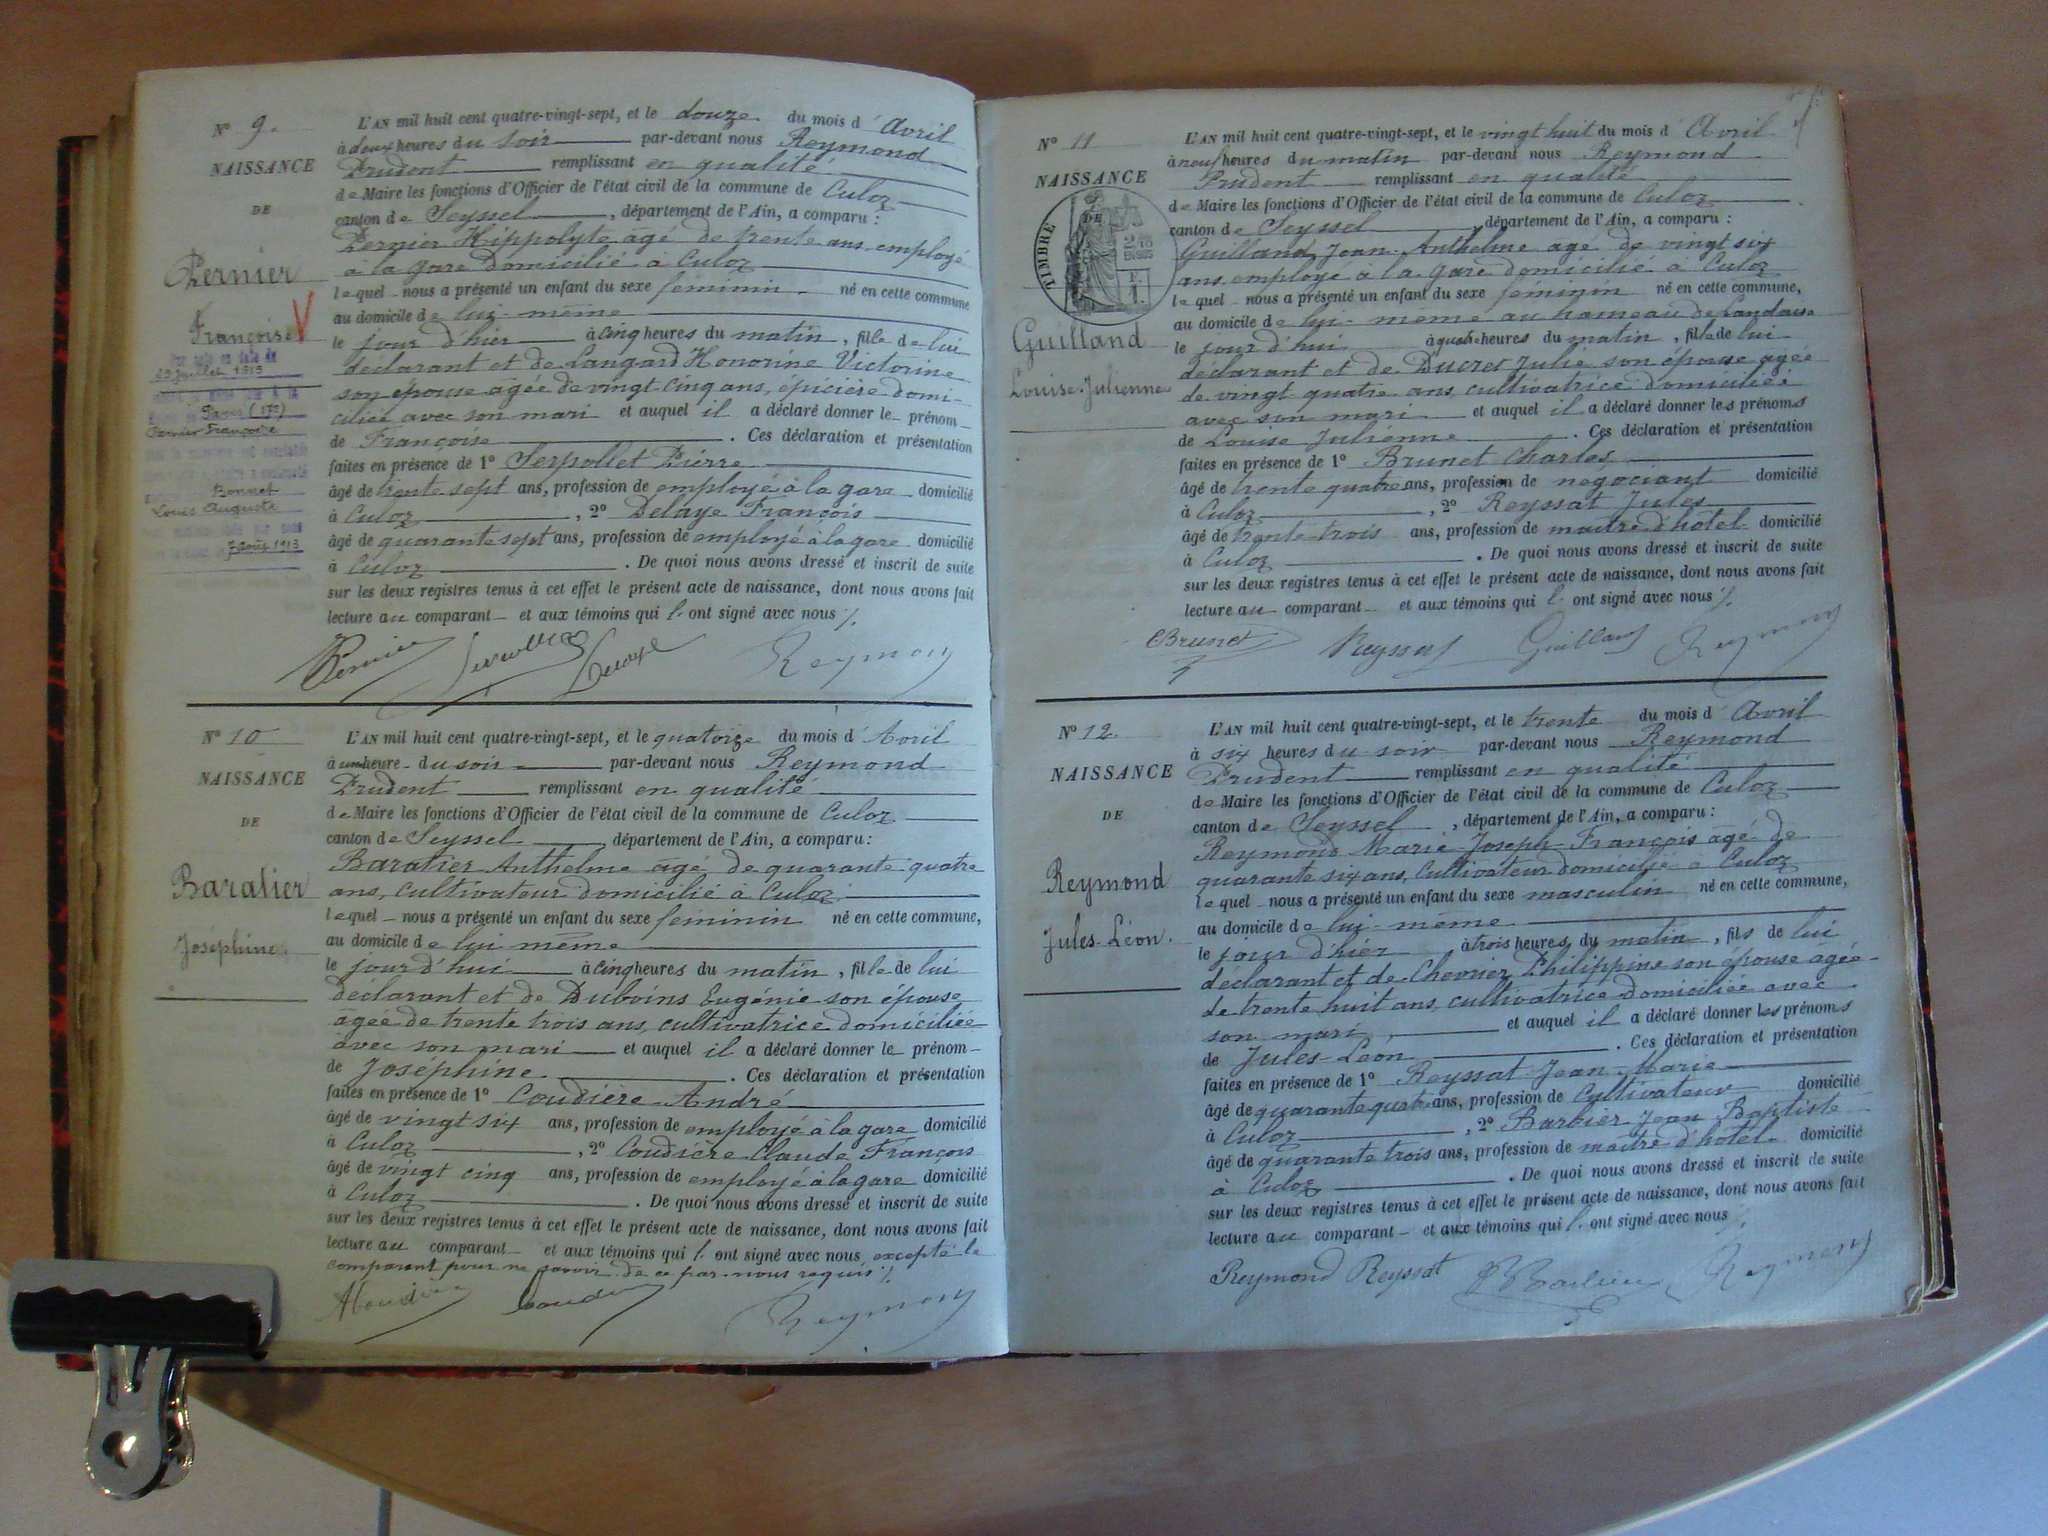 N° 9.
NAISSANCE
DE
Pernier
Françoise
Par acte en date du
29 Juillet 1913
Paris (17e)
Pernier Françoise
Bonnet
Louis Auguste
7 août 1913
L'AN mil huit cent quatre-vingt-sept, et le douze du mois d'Avril
à deux heures du soir par-devant nous Reymond
Prudent remplissant en qualité
de Maire les fonctions d'Officier de l'état civil de la commune de Culoz
canton de Seyssel, département de l'Ain, a comparu :
Pernier Hippolyte âgé de trente ans employé
à la gare domicilié à Culoz
lequel nous a présenté un enfant du sexe féminin né en cette commune
au domicile de lui-même
le jour d'hier à cinq heures du matin, fille de lui
déclarant et de Langard Honorine Victorine
son épouse âgée de vingt cinq ans, épicière domi-
ciliée avec son mari et auquel il a déclaré donner le prénom
de Françoise. Ces déclaration et présentation
faites en présence de 1° Serpollet Pierre
âgé de trente sept ans, profession de employé à la gare domicilié
à Culoz, 2° Delaye François
âgé de quarante sept ans, profession de employé à la gare domicilié
à Culoz. De quoi nous avons dressé et inscrit de suite
sur les deux registres tenus à cet effet le présent acte de naissance, dont nous avons fait
lecture au comparant et aux témoins qui l'ont signé avec nous
Pernier Delaye Reymond
N° 10
NAISSANCE
DE
Baratier
Joséphine.
L'AN mil huit cent quatre-vingt-sept, et le quatorze du mois d'Avril
à une heure du soir par-devant nous Reymond
Prudent remplissant en qualité
de Maire les fonctions d'Officier de l'état civil de la commune de Culoz
canton de Seyssel, département de l'Ain, a comparu :
Baratier Anthelme âgé de quarante quatre
ans, cultivateur domicilié à Culoz
lequel nous a présenté un enfant du sexe féminin né en cette commune,
au domicile de lui même
le jour d'hui à cinq heures du matin, fille de lui
déclarant et de Duboins Eugénie son épouse
âgée de trente trois ans, cultivatrice domiciliée
avec son mari et auquel il a déclaré donner le prénom
de Joséphine. Ces déclaration et présentation
faites en présence de 1° Coudière André
âgé de vingt six ans, profession de employé à la gare domicilié
à Culoz, 2° Coudière Claude François
âgé de vingt cinq ans, profession de employé à la gare domicilié
à Culoz. De quoi nous avons dressé et inscrit de suite
sur les deux registres tenus à cet effet le présent acte de naissance, dont nous avons fait
lecture au comparant et aux témoins qui l'ont signé avec nous excepté le
comparant pour ne savoir de ce par nous requis
Reymond
N° 11
NAISSANCE
DE
TIMBRE
Guilland
Louise-Julienne
L'AN mil huit cent quatre-vingt-sept, et le vingt huit du mois d'Avril
à neuf heures du matin par-devant nous Reymond
Prudent remplissant en qualité
de Maire les fonctions d'Officier de l'état civil de la commune de Culoz
canton de Seyssel, département de l'Ain, a comparu :
Guilland Jean-Anthelme âgé de vingt six
ans employé à la gare domicilié à Culoz
lequel nous a présenté un enfant du sexe féminin né en cette commune,
au domicile de lui-même au hameau de Landaise
le jour d'hui à quatre heures du matin, fille de lui
déclarant et de Ducret Julie son épouse âgée
de vingt quatre ans cultivatrice domiciliée
avec son mari et auquel il a déclaré donner les prénoms
de Louise Julienne. Ces déclaration et présentation
faites en présence de 1° Brunet Charles
âgé de trente quatre ans, profession de négociant domicilié
à Culoz, 2° Reyssat Jules
âgé de trente-trois ans, profession de maître d'hôtel domicilié
à Culoz. De quoi nous avons dressé et inscrit de suite
sur les deux registres tenus à cet effet le présent acte de naissance, dont nous avons fait
lecture au comparant et aux témoins qui l'ont signé avec nous
Brunet Reyssat Guilland Reymond
N° 12.
NAISSANCE
DE
Reymond
Jules-Léon.
L'AN mil huit cent quatre-vingt-sept, et le trente du mois d'Avril
à six heures du soir par-devant nous Reymond
Prudent remplissant en qualité
de Maire les fonctions d'Officier de l'état civil de la commune de Culoz
canton de Seyssel, département de l'Ain, a comparu :
Reymond Marie-Joseph-François âgé de
quarante six ans, Cultivateur domicilié à Culoz
lequel nous a présenté un enfant du sexe masculin né en cette commune,
au domicile de lui-même
le jour d'hier à trois heures du matin, fils de lui
déclarant et de Chevrier Philippine son épouse âgée
de trente huit ans, cultivatrice domiciliée avec
son mari et auquel il a déclaré donner les prénoms
de Jules-Léon. Ces déclaration et présentation
faites en présence de 1° Reyssat Jean-Marie
âgé de quarante quatre ans, profession de Cultivateur domicilié
à Culoz, 2° Barbier Jean Baptiste
âgé de quarante trois ans, profession de maître d'hôtel domicilié
à Culoz. De quoi nous avons dressé et inscrit de suite
sur les deux registres tenus à cet effet le présent acte de naissance, dont nous avons fait
lecture au comparant et aux témoins qui l'ont signé avec nous
Reymond Reyssat Barbier Reymond